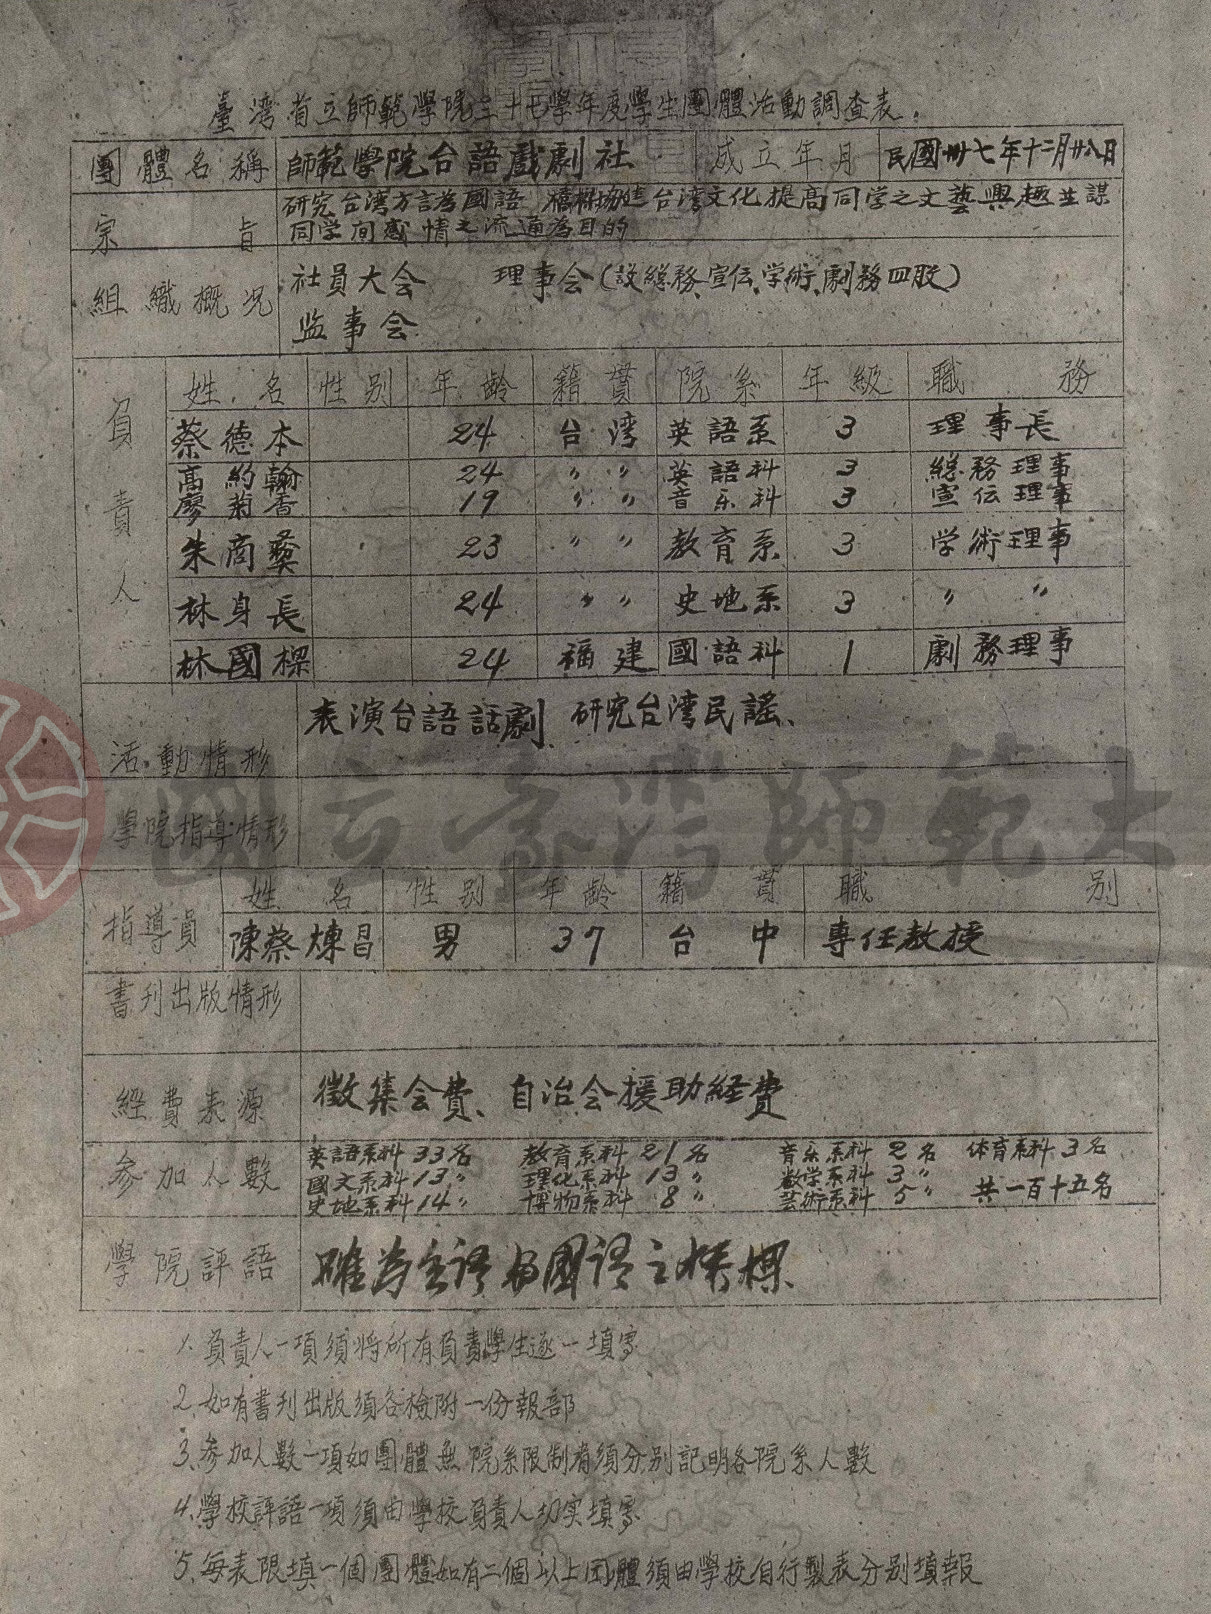 臺湾省立師範學院三十七學年度學生團體活動調查表
團體名稱 師範學院台語戲劇社 成立年月 民國卅七年十二月廿八日
宗旨 研究台湾方言為國語 協進台湾文化提高同学之文藝興趣並謀
同学间感情之流通為目的
組織概况 社員大会 理事会(設総務、宣伝、学術、劇務四股)
监事会
負責人 姓名 性别 年齡 籍貫 院系 年級 職務
蔡德本 24 台湾 英語系 3 理事長
高約翰 24 〃 〃 英語科 3 総務理事
廖菊香 19 〃 〃 音乐科 3 宣伝理事
朱商彝 23 〃 〃 教育系 3 学術理事
林身長 24 〃 〃 史地系 3 〃 〃
林國樑 24 福建 國語科 1 劇務理事
活動情形 表演台語話劇、研究台湾民謠、
學院指導情形
國立臺灣師範大
指導員 姓名 性别 年齡 籍貫 職别
陳蔡煉昌 男 37 台中 專任教授
書刊出版情形
經費來源 徵集会費、自治会援助経費
参加人數 英語系科 33名 教育系科 21名 音乐系科 2名 体育系科 3名
國文系科 13〃 理化系科 13〃 数学系科 3〃
史地系科 14〃 博物系科 8〃 芸術系科 5〃 共一百十五名
學院評語 確為台語與國語之橋樑
1、負責人一項須將所有負責學生逐一填寫
2、如有書刊出版須各檢附一份報部
3、参加人數一項如團體無院系限制者須分别記明各院系人數
4、學校評語一項須由學校負責人切实填寫
5、每表限填一個團體如有二個以上团體須由學校自行製表分别填報